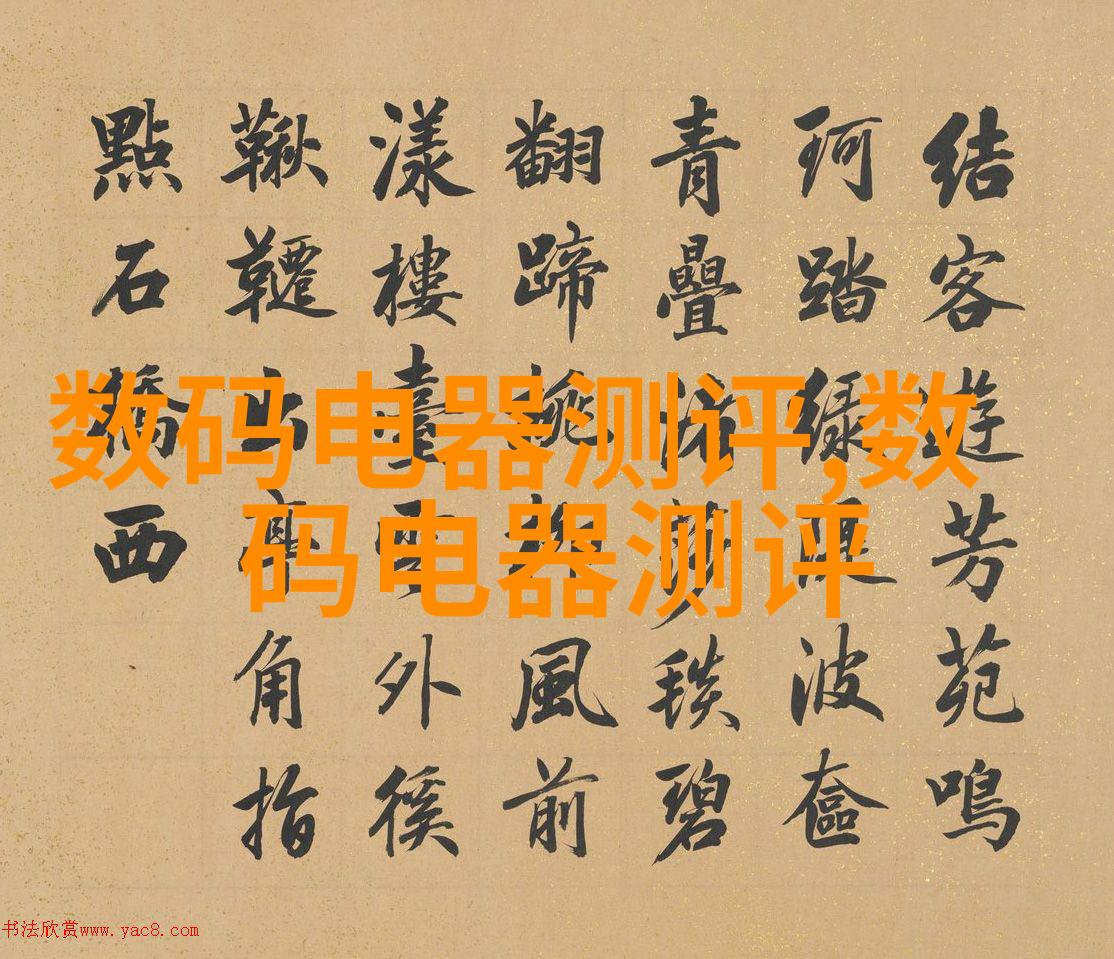 結客遊芳苑鳴
珂踏綠隄波奩
青疊毯碧
翻蹄風前
漾樓臺雲外徯
鞦韆亭角指
點石橋西
数码电器测评,数
码电器测评
书法欣赏www.yac8.com